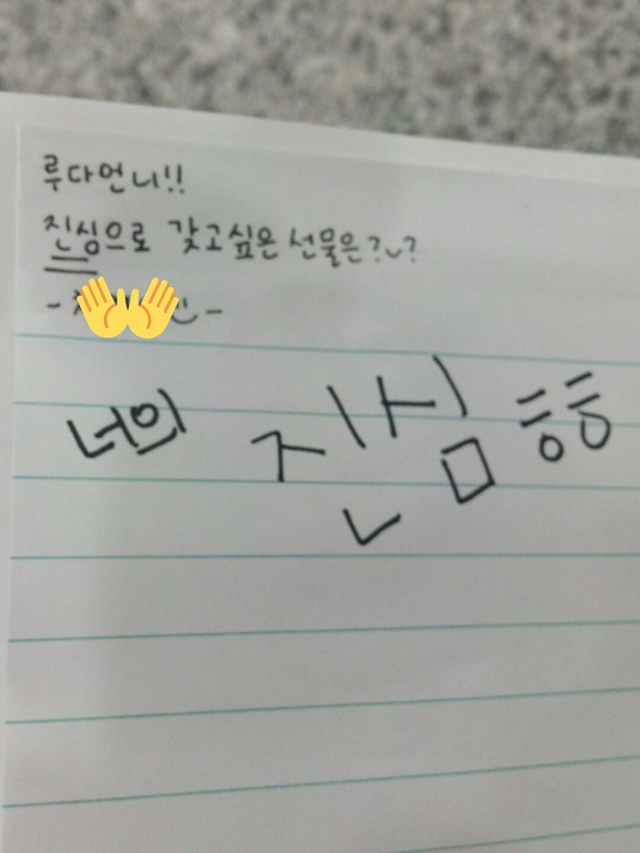 루다언니!!
진심으로 갖고싶은 선물은?ᴗ?
너의 진심 ㅎㅎ